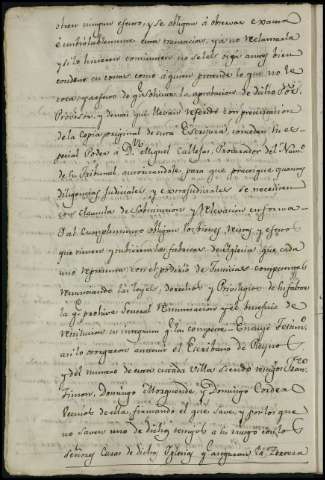 obren ningun efecto, y se obligan á observar exacta
é imbiolablemente esta transacion, ya no reclamarla
y si lo hicieren consienten no se les oiga antes bien
condene en costas como á quien pretende lo que no le
toca, y a efecto de qe obtener la aprobacion de dicho Sor.
Provisor, y demas que llevan referido con presentacion
de la copia original de esta Escritura, conceden su es-
pecial Poder a Dn. Miguel Callejas, Procurador del Numo.
de su Tribunal autorizandole para que practique quantas
diligencias Judiciales y extrajudiciales se necesitaren
con clausula de substitucion, y relevacion en forma
Y al cumplimiento obligan los bienes, rentas, y efectos
que tienen y tubieren las fabricas de Yglesias que cada
uno representa con el poderio de Justicias competentes
renunciando las leyes, derechos y Privilegios de su fabor
la qe prohive General renunciacion y el beneficio de
restitucion in integrum qe las compete = En cuyo Testimo.
asi lo otorgaron ante mi el Escribano de Reyno
y del numero de esta citada villa siendo testigos Franco.
Simon, Domingo y Domingo
vecinos de ella, firmando el que save, y por los que
no saven uno de dichos testigos a su ruego con los
señores Curas de dichas Yglesias y